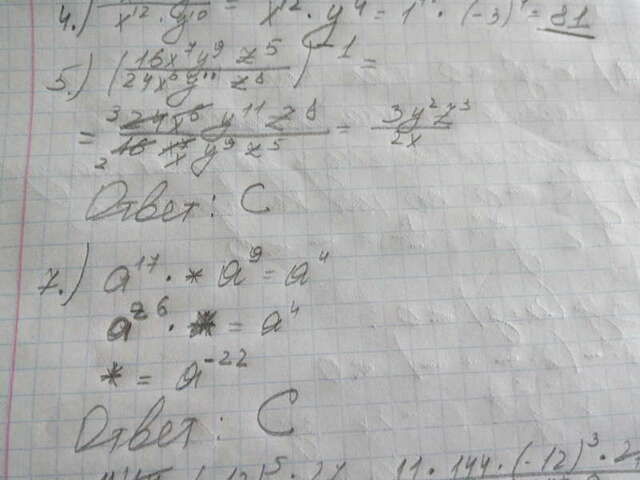 4.) x¹² · y¹⁰ = x¹² · y⁴ = 1¹² · (-3)⁴ = 81
5.) (16x⁷y⁹ z⁵ / 24x⁶y¹¹ z⁸)⁻¹ =
= ³24x⁶ y¹¹ z⁸ / ₂16 x⁷ y⁹ z⁵ = 3y²z³ / 2x
Ответ: С
7.) a¹⁷ · * a⁹ = a⁴
a²⁶ · * = a⁴
* = a⁻²²
Ответ: С
11 · 144 · (-12)³ · 2